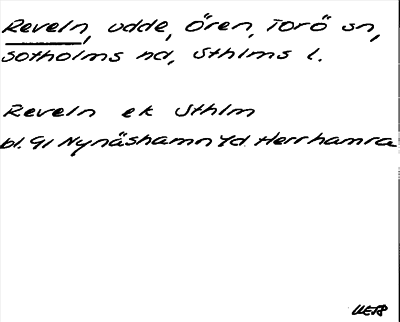 Reveln, udde, Ören, Torö sn,
Sotholms hd, Sthlms l.
Reveln ek Sthlm
bl. 91 Nynäshamn Yd Herrhamra